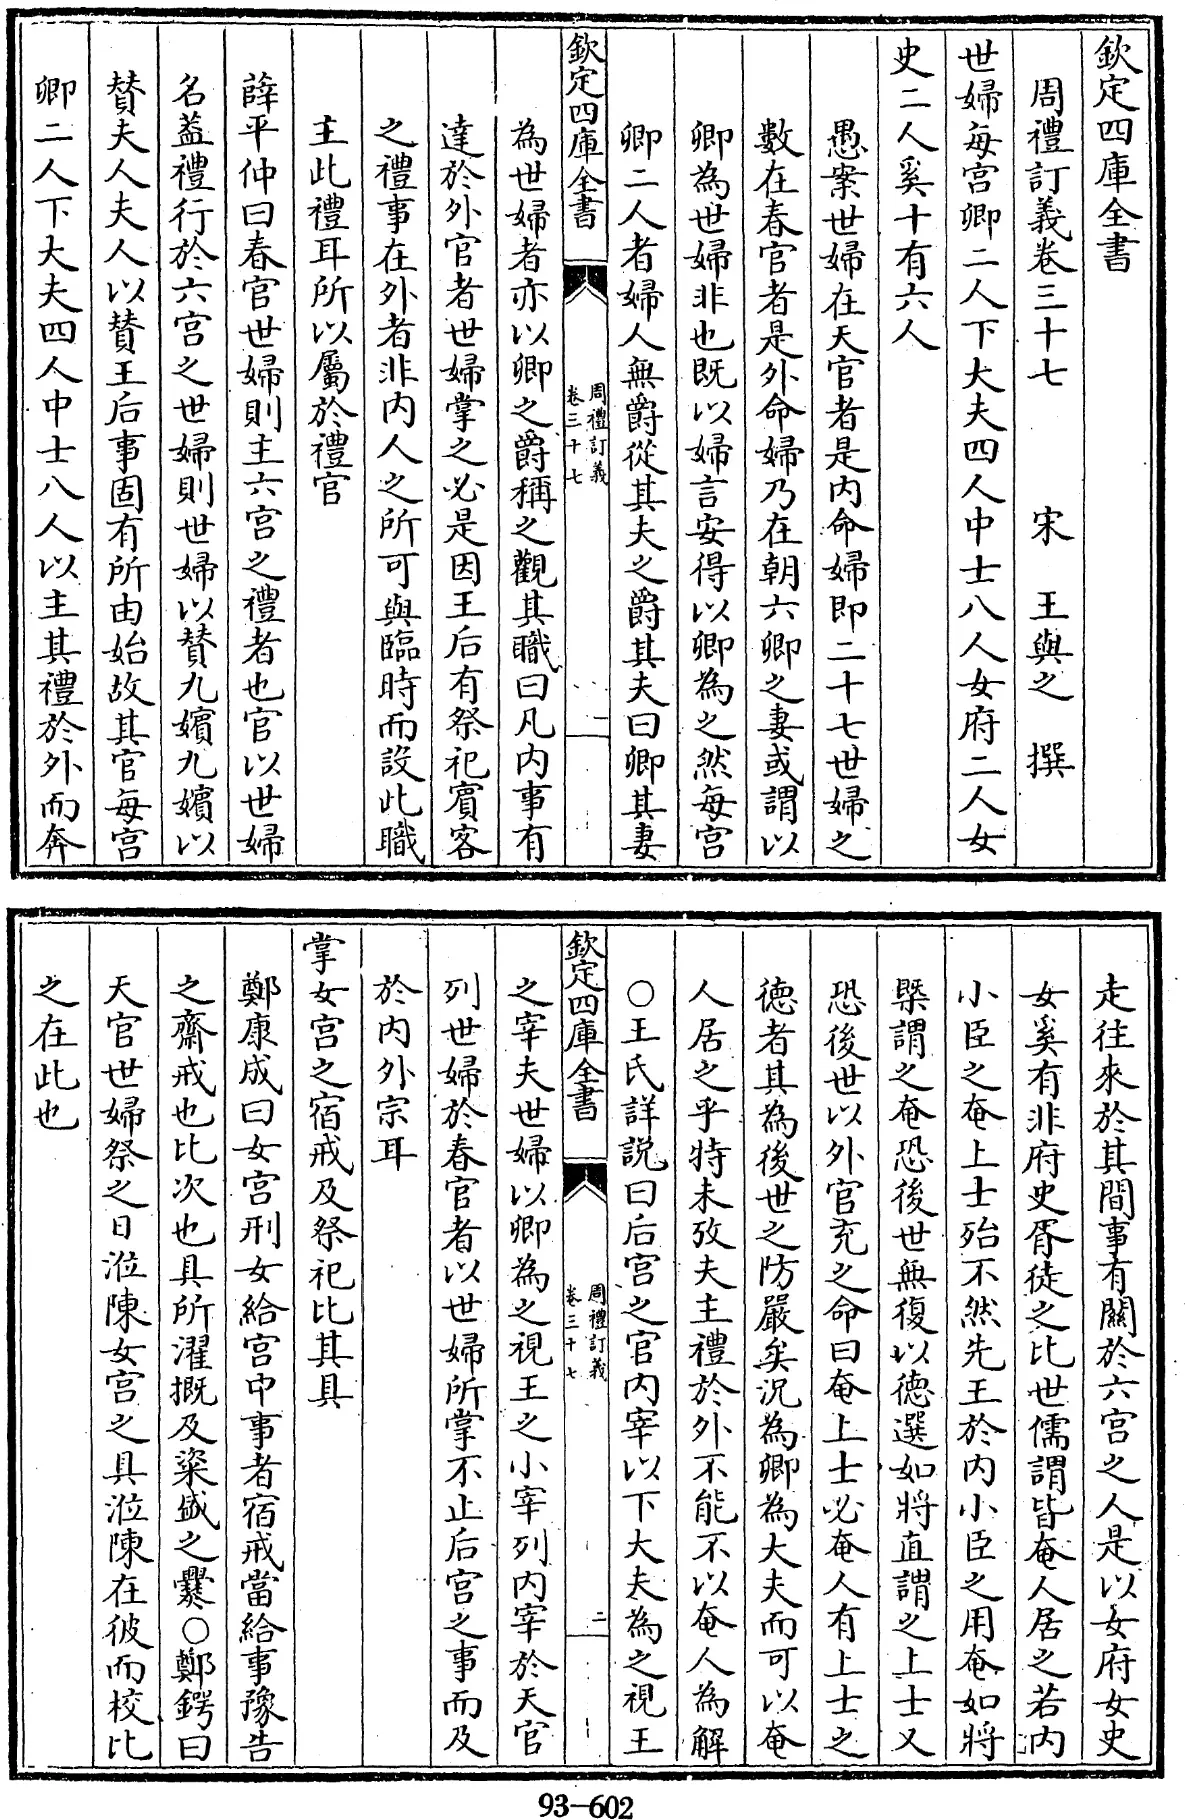 欽定四庫全書
周禮訂義卷三十七　宋　王與之　撰
世婦每宫卿二人下大夫四人中士八人女府二人女
史二人奚十有六人
愚案世婦在天官者是内命婦即二十七世婦之
數在春官者是外命婦乃在朝六卿之妻或謂以
卿為世婦非也既以婦言安得以卿為之然每宫
卿二人者婦人無爵從其夫之爵其夫曰卿其妻
欽定四庫全書
周禮訂義
卷三十七
一
為世婦者亦以卿之爵稱之觀其職曰凡内事有
達於外官者世婦掌之必是因王后有祭祀賓客
之禮事在外者非内人之所可與臨時而設此職
主此禮耳所以屬於禮官
薛平仲曰春官世婦則主六宫之禮者也官以世婦
名葢禮行於六宫之世婦則世婦以賛九嬪九嬪以
賛夫人夫人以賛王后事固有所由始故其官每宫
卿二人下大夫四人中士八人以主其禮於外而奔
走往來於其間事有關於六宫之人是以女府女史
女奚有非府史胥徒之比世儒謂皆奄人居之若内
小臣之奄上士殆不然先王於内小臣之用奄如將
槩謂之奄恐後世無復以徳選如將直謂之上士又
恐後世以外官充之命曰奄上士必奄人有上士之
徳者其為後世之防嚴矣况為卿為大夫而可以奄
人居之乎特未攷夫主禮於外不能不以奄人為解
○王氏詳説曰后宫之官内宰以下大夫為之視王
欽定四庫全書
周禮訂義
卷三十七
二
之宰夫世婦以卿為之視王之小宰列内宰於天官
列世婦於春官者以世婦所掌不止后宫之事而及
於内外宗耳
掌女宫之宿戒及祭祀比其具
鄭康成曰女宫刑女給宫中事者宿戒當給事豫告
之齋戒也比次也具所濯摡及粢盛之爨○鄭鍔曰
天官世婦祭之日涖陳女宫之具涖陳在彼而校比
之在此也
93-602